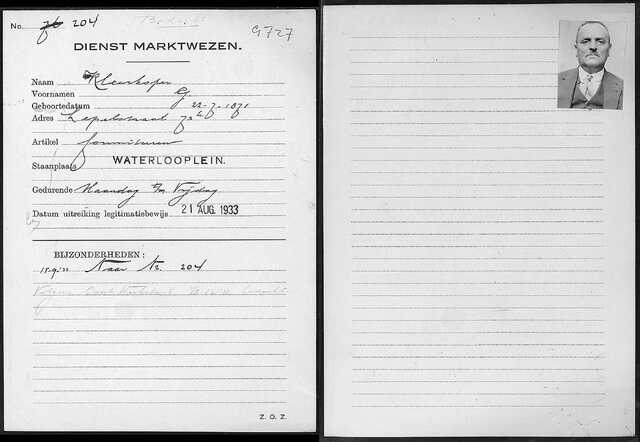 No. 204
G727
DIENST MARKTWEZEN.
Naam Kleerkoper
Voornamen G
Geboortedatum 22-7-1871
Adres Lepelstraat
Artikel fournituren
Staanplaats WATERLOOPLEIN.
Gedurende Maandag t/m Vrijdag
Datum uitreiking legitimatiebewijs 21 AUG. 1933
BIJZONDERHEDEN:
15.9.33 Naar No. 204
Z. O. Z.